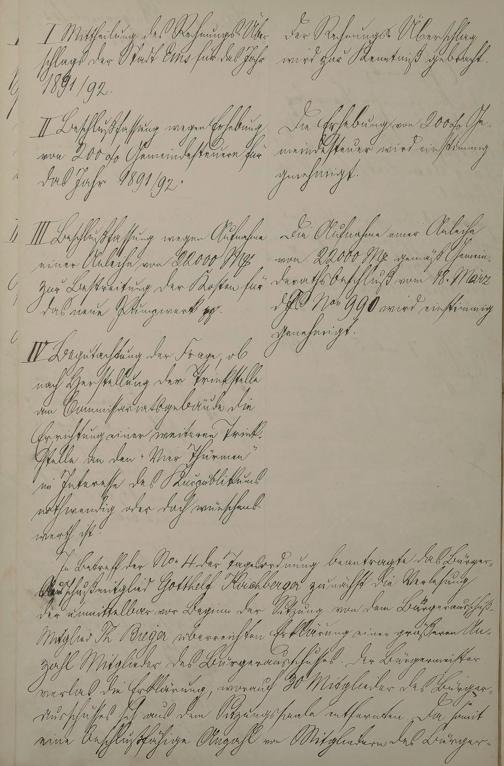 I Mittheilung des Rechnungs-Über-
schlags der Stadt Ems für das Jahr
1891/92.
Der Rechnungs-Überschlag
wird zur Kenntniß gebracht.
II Beschlußfassung wegen Erhebung
von 200 % Gemeindesteuern für
das Jahr 1891/92.
Die Erhebung von 200 % Ge-
meindesteuer wird einstimmig
genehmigt.
III Beschlußfassung wegen Aufnahme
einer Anleihe von 22000 Mk
zur Bestreitung der Kosten für
das neue Pumpwerk pp.
Die Aufnahme einer Anleihe
von 22000 Mk gemäß Gemein-
derathsbeschluß vom 18. März
d. Js. Nro 990 wird einstimmig
genehmigt.
IV Begutachtung der Frage, ob
nach Herstellung der Trinkstelle
am Commissariatsgebäude die
Errichtung einer weiteren Trink-
stelle an den "Vier Thürmen"
im Interesse des Kurpublikums
nothwendig oder doch wünschens-
werth ist.
In Betreff der No. 4 der Tagesordnung beantragte das Bürger-
ausschußmitglied Gotthelf zunächst die Verlesung
der unmittelbar vor Beginn der Sitzung von dem Bürgerausschuß-
Mitglied überreichten Erklärung einer größeren An-
zahl Mitglieder des Bürgerausschusses. Der Bürgermeister
verlas die Erklärung, worauf 30 Mitglieder des Bürger-
ausschusses sich aus dem Sitzungssaale entfernten. Da somit
eine beschlußfähige Anzahl von Mitgliedern des Bürger-